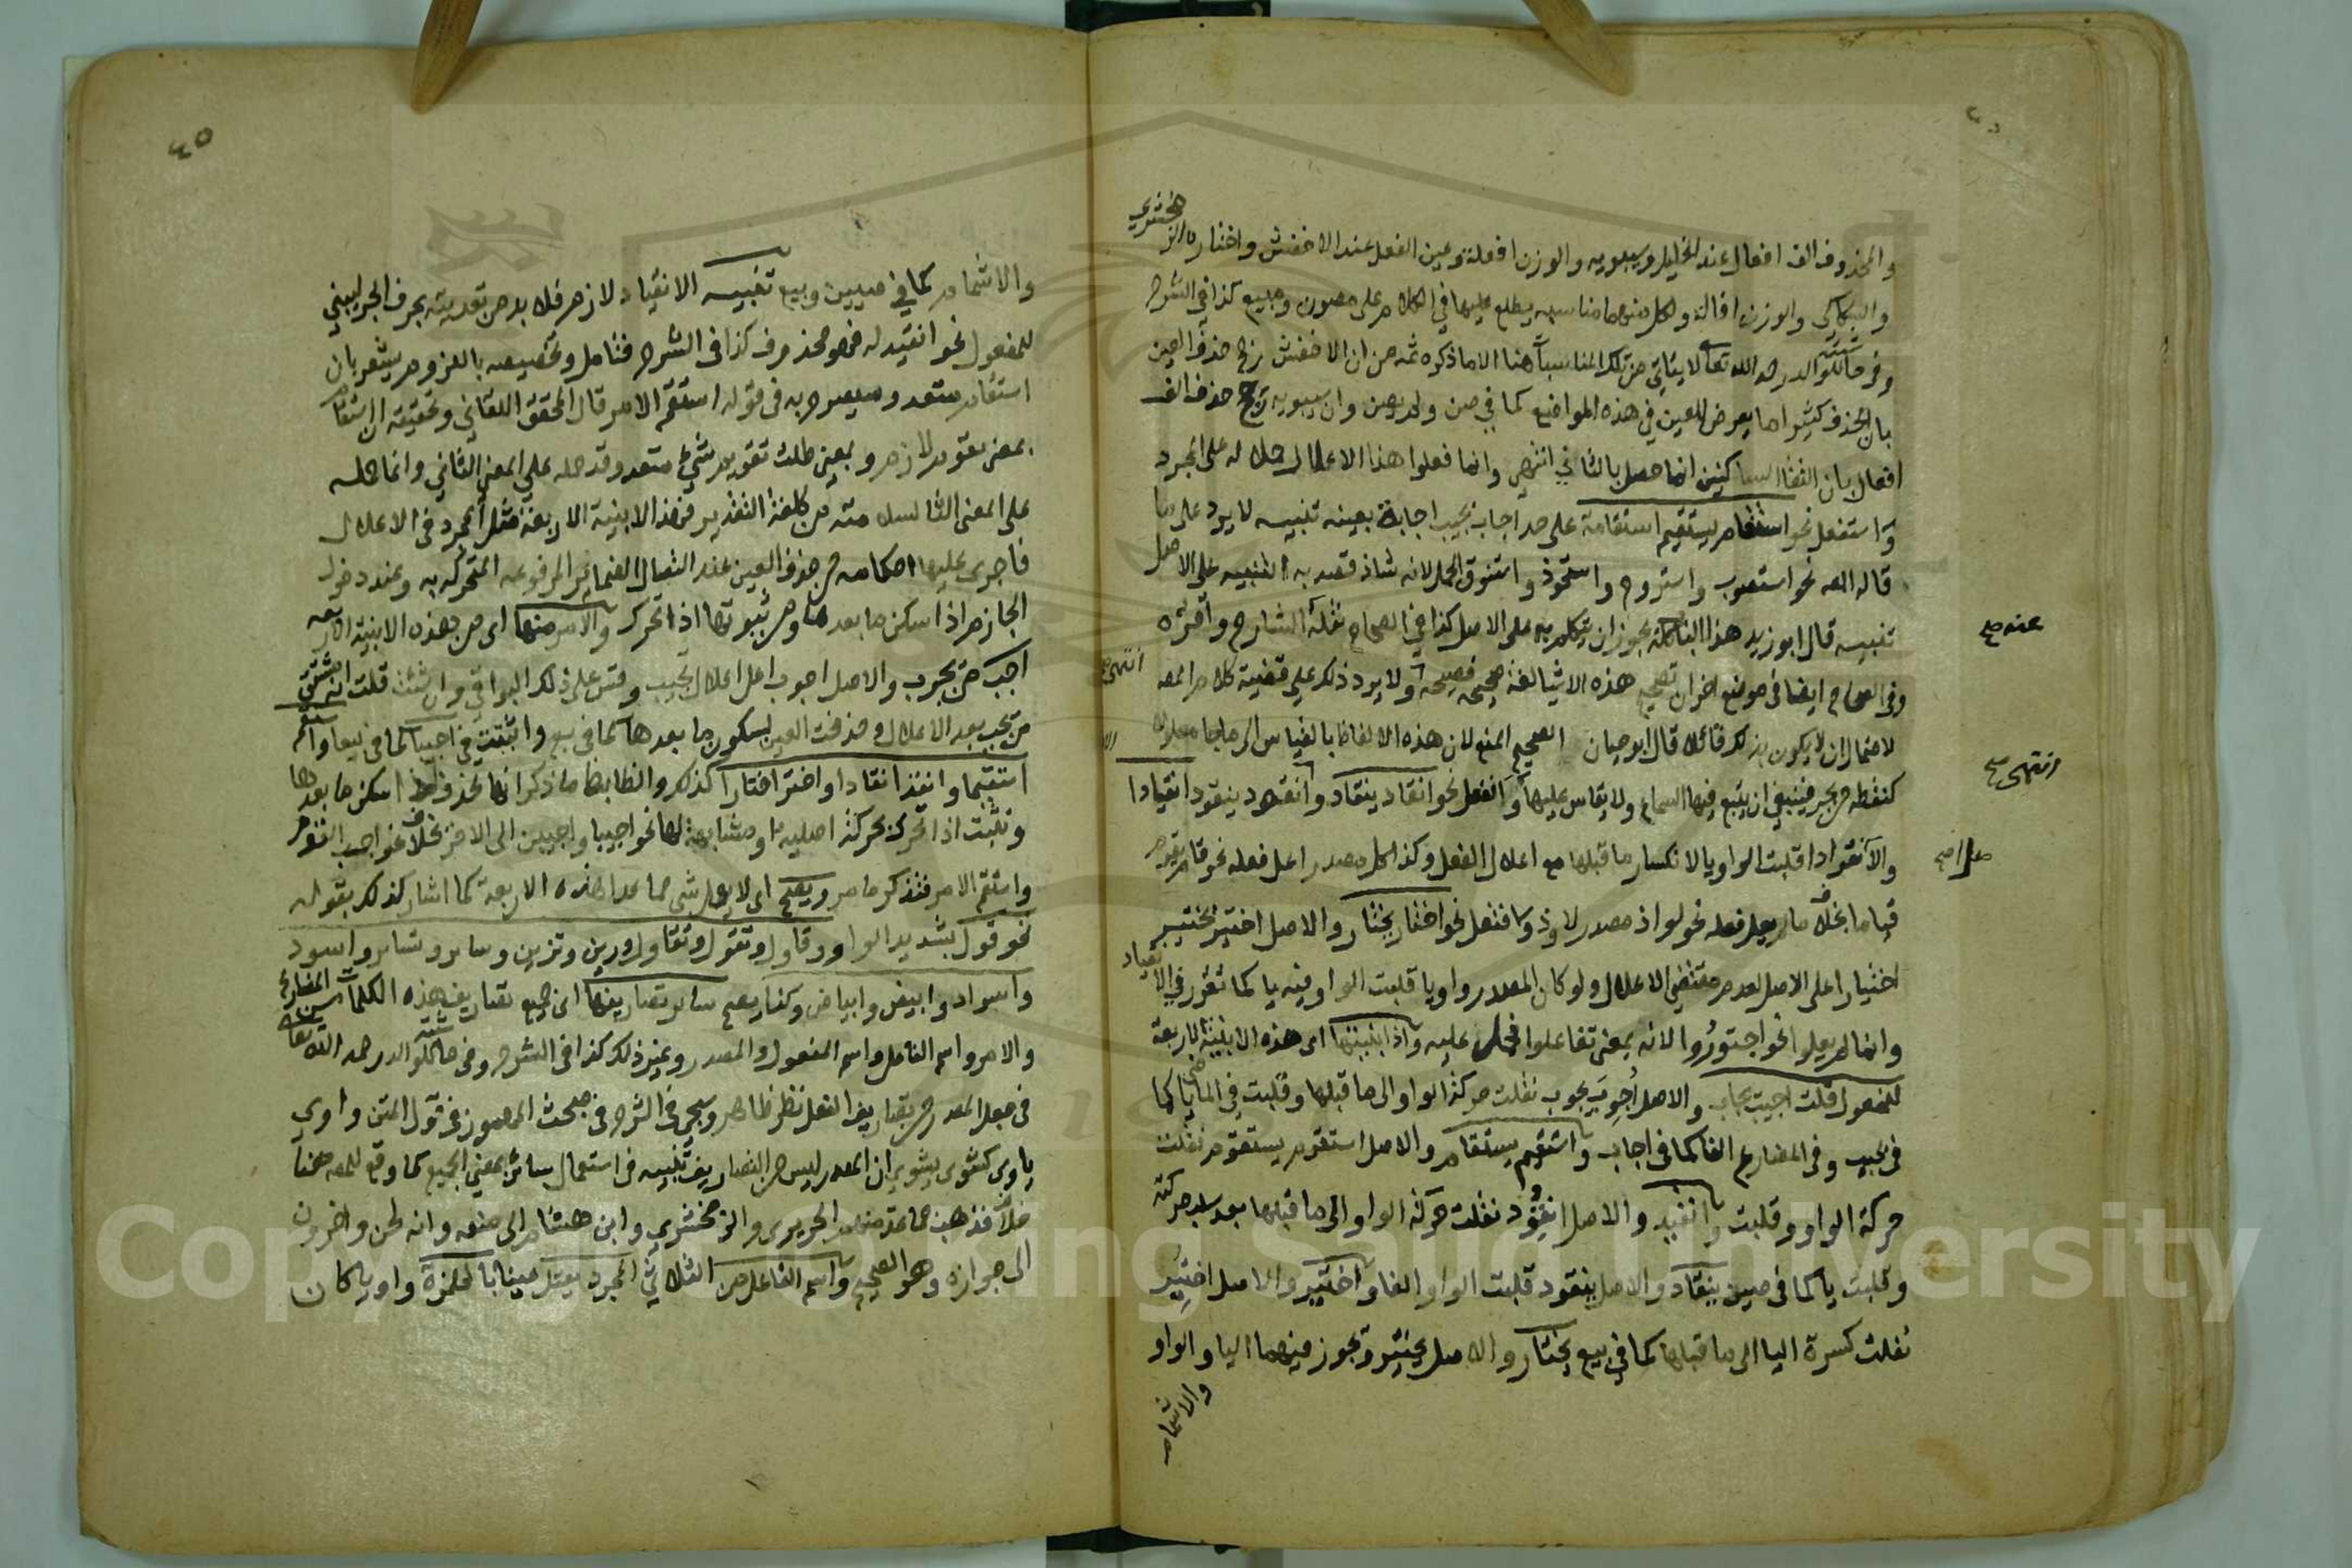 والمحذوف الف افعال عند الخليل وسيبويه والوزن افعلة وعين الفعل عند الاخفش واختاره الزمخشري
والسكاكي والوزن افالة ولكل منهما مناسبة يطلع عليها في الكلام على مصون ومبيع كذا في الشرح
رحمه الله تعالى لا يتاتى من تلك المناسبات هنا الا ما ذكره ثمه من ان الاخفش رجح حذف العين
بان الحذف كثيرا ما يعرض للعين في هذه المواضع كما في صن ولم يصن وان سيبويه رجح حذف الف
افعال بان التقا الساكنين انما حصل بالثاني انتهى وانما فعلوا هذا الاعلال حملا له على المجرد
واستفعل نحو استقام يستقيم استقامة على حد اجاب يجيب اجابة بعينه تنبيه لا يرد على ما
قاله المص نحو استصوب واستروح واستحوذ واستنوق الجمل لانه شاذ قصد به التنبيه على الاصل
تنبيه قال ابو زيد هذا الباب كله يجوز ان يتكلم به على الاصل كذا في الصحاح نقله الشارح واقره
عنه صح
وفي الصحاح ايضا في موضع اخر ان تصحيح هذه الاشيا لغة صحيحة فصيحة ولا يرد ذلك على قضية كلام المص
انتهى صح
لاحتمال ان لا يكون بذلك قائلا قال ابو حيان الصحيح المنع لان هذه الالفاظ بالقياس الى ما جا معلولا
انتهى صح
كنقطة من بحر فينبغي ان يتبع فيها السماع ولا يقاس عليها وانفعل نحو انقاد ينقاد وانقود ينقود انقيادا
والانقوادا قلبت الواو يا لانكسار ما قبلها مع اعلال الفعل وكذا كل مصدر اعل فعله نحو قام يقوم
قياما بخلاف ما لم يعل فعله نحو لواذ مصدر لاوذ وافتعل نحو اختار يختار والاصل اختير يختير
اختيارا على الاصل لعدم مقتضي الاعلال ولو كان المصدر واويا قلبت الواو فيه يا كما تقرر في الانقياد
وانما لم يعلوا نحو اجتوروا لانه بمعنى تفاعلوا فحمل عليه واذا بنيتها اى هذه الابنية الاربعة
للمفعول قلت اجيب يجاب والاصل اجوب يجوب نقلت حركة الواو الى ما قبلها وقلبت في الماضي يا كما
في يجيب وفي المضارع الفا كما في اجاب واستقيم يستقام والاصل استقوم يستقوم نقلت
حركة الواو وقلبت وانقيد والاصل انقود نقلت حركة الواو الى ما قبلها بعد سلب حركته
وقلبت يا كما في صين ينقاد والاصل ينقود قلبت الواو الفا واختير والاصل اختير
نقلت كسرة اليا الى ما قبلها كما في بيع يختار والاصل يختير وتجوز فيهما اليا والواو
والاشمام
٤٥
والاشمام كما في صين وبيع تنبيه الانقياد لازم فلا بد من تعديته بحرف الجر ليبني
للمفعول نحو انقيد له فهو محذوف كذا في الشرح فتامل وتخصيصه باللزوم يشعر بان
استقام متعد وسيصرح به في قوله استقم الامر قال المحقق اللقاني وتحقيقه ان استقام
بمعنى تقوم لازم وبمعنى طلب تقويم شيء متعد وقد حمله على المعنى الثاني وانما حمله
على المعنى الثا لسلامته من كلفة التقدير فهذه الابنية الاربعة مثل المجرد في الاعلال
فاجرى عليها احكامه من حذف العين عند اتصال الضمائر المرفوعه المتحركه به وعند دخول
الجازم اذا سكن ما بعدها ومن ثبوتها اذا تحرك والامر منها اى من هذه الابنية الاربعه
اجب من تجوب والاصل اجوب اعل اعلال يجيب وقس على ذلك البواقي وان شئت قلت انه مشتق
من تجيب بعد الاعلال وحذفت العين لسكون ما بعدها كما في بع واثبتت في اجيبا كما في بيعا واستقم
استقيما وانقد انقادا واختر اختارا كذلك والضابط ما ذكر انها تحذف اذا سكن ما بعدها
وتثبت اذا تحرك بحركة اصليه او مشابهة لها نحو اجيبا واجيبن الى الاخر بخلاف نحو اجب القوم
واستقم الامر فتذكر ما مر ويصح اى لا يعل شى مما عدا هذه الاربعة كما اشار كذلك بقوله
نحو قول بتشديد الواو وقاول وتقول وتقاول وزين وتزين وساير وتساير واسود
واسواد وابيض وابياض وكذا يصح ساير تصاريفها اى جميع تصاريف هذه الكلمات من المضارع
والامر واسم الفاعل واسم المفعول والمصدر وغير ذلك كذا في الشرح رحمه الله تعالى
في جعل المصدر من تصاريف الفعل نظر ظاهر وسيجى في الشرح في مبحث المهموز في قول المتن واوي
ياوى كشوى يشوي ان المصدر ليس من التصاريف تنبيه في استعمال سائر بمعنى الجميع كما وقع للمص هنا
خلاف فذهب جماعة منهم الحريري والزمخشري وابن هشام الى منعه وانه لحن واخرون
الى جوازه وهو الصحيح واسم الفاعل من الثلاثي المجرد يعتل عينا بالهمزة واويا كان